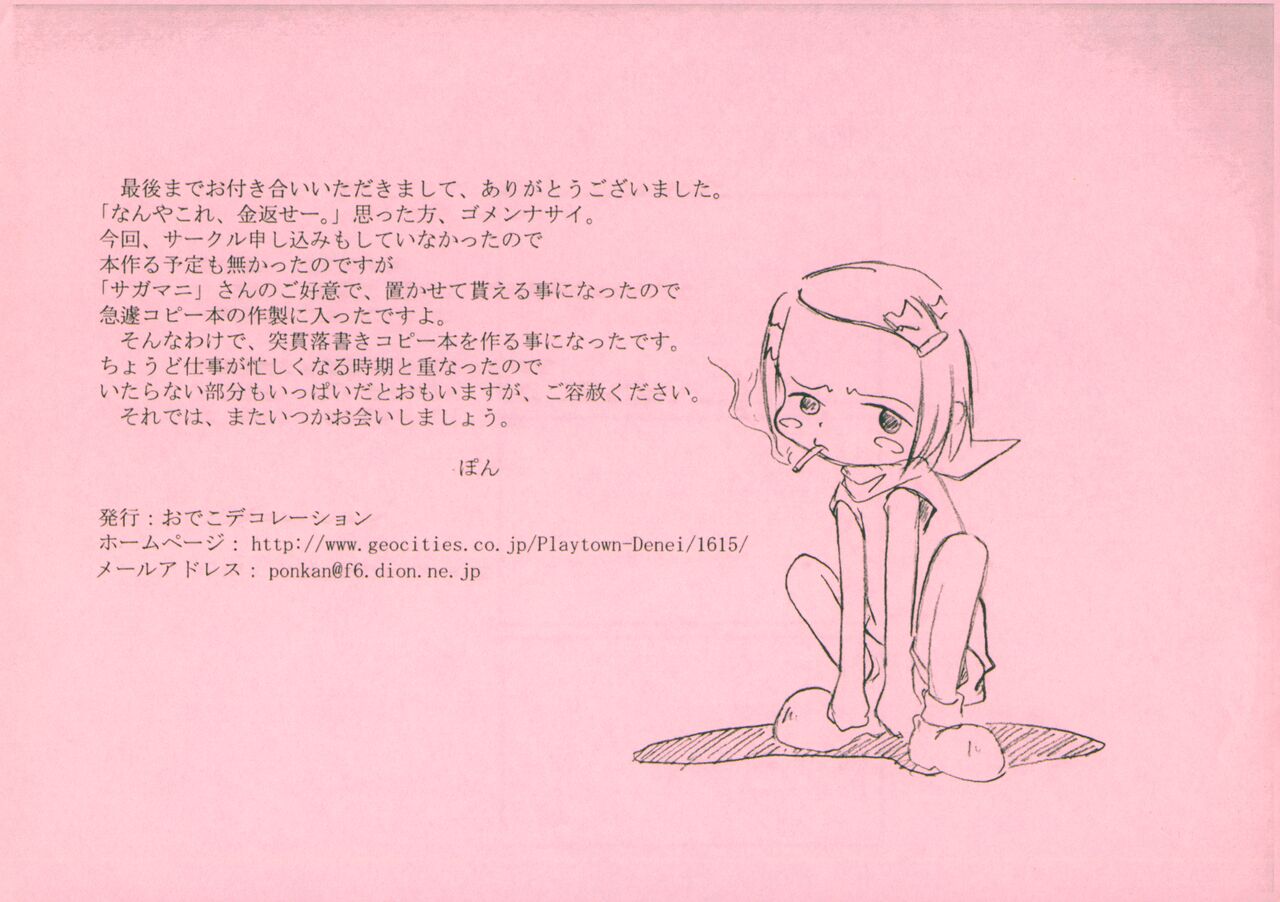 最後までお付き合いいただきまして、ありがとうございました。
「なんやこれ、金返せー。」思った方、ゴメンナサイ。
今回、サークル申し込みもしていなかったので
本作る予定も無かったのですが
「サガマニ」さんのご好意で、置かせて貰える事になったので
急遽コピー本の作製に入ったですよ。
そんなわけで、突貫落書きコピー本を作る事になったです。
ちょうど仕事が忙しくなる時期と重なったので
いたらない部分もいっぱいだとおもいますが、ご容赦ください。
それでは、またいつかお会いしましょう。
ぽん
発行：おでこデコレーション
ホームページ：http://www.geocities.co.jp/Playtown-Denei/1615/
メールアドレス：ponkan@f6.dion.ne.jp